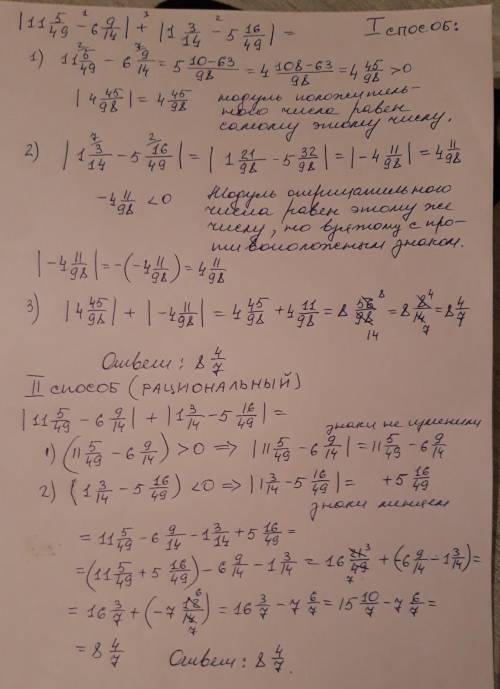 |11 5/49 - 6 9/14| + |1 3/14 - 5 16/49| = I способ:
1) 11 5/49 - 6 9/14 = 5 (10-63)/98 = 4 (108-63)/98 = 4 45/98 > 0
|4 45/98| = 4 45/98 модуль положитель-
ного числа равен
самому этому числу.
2) |1 3/14 - 5 16/49| = |1 21/98 - 5 32/98| = |-4 11/98| = 4 11/98
-4 11/98 < 0 Модуль отрицательного
числа равен этому же
числу, но взятому с про-
тивоположным знаком.
|-4 11/98| = -(-4 11/98) = 4 11/98
3) |4 45/98| + |-4 11/98| = 4 45/98 + 4 11/98 = 8 56/98 = 8 8/14 = 8 4/7
Ответ: 8 4/7
II способ (РАЦИОНАЛЬНЫЙ)
|11 5/49 - 6 9/14| + |1 3/14 - 5 16/49| =
знаки не
1) (11 5/49 - 6 9/14) > 0 => |11 5/49 - 6 9/14| = 11 5/49 - 6 9/14
2) (1 3/14 - 5 16/49) < 0 => |1 3/14 - 5 16/49| = + 5 16/49
знаки меняем
= 11 5/49 - 6 9/14 - 1 3/14 + 5 16/49 =
= (11 5/49 + 5 16/49) - 6 9/14 - 1 3/14 = 16 21/49 + (-6 9/14 - 1 3/14) =
= 16 3/7 + (-7 12/14) = 16 3/7 - 7 6/7 = 15 10/7 - 7 6/7 =
= 8 4/7 Ответ: 8 4/7.